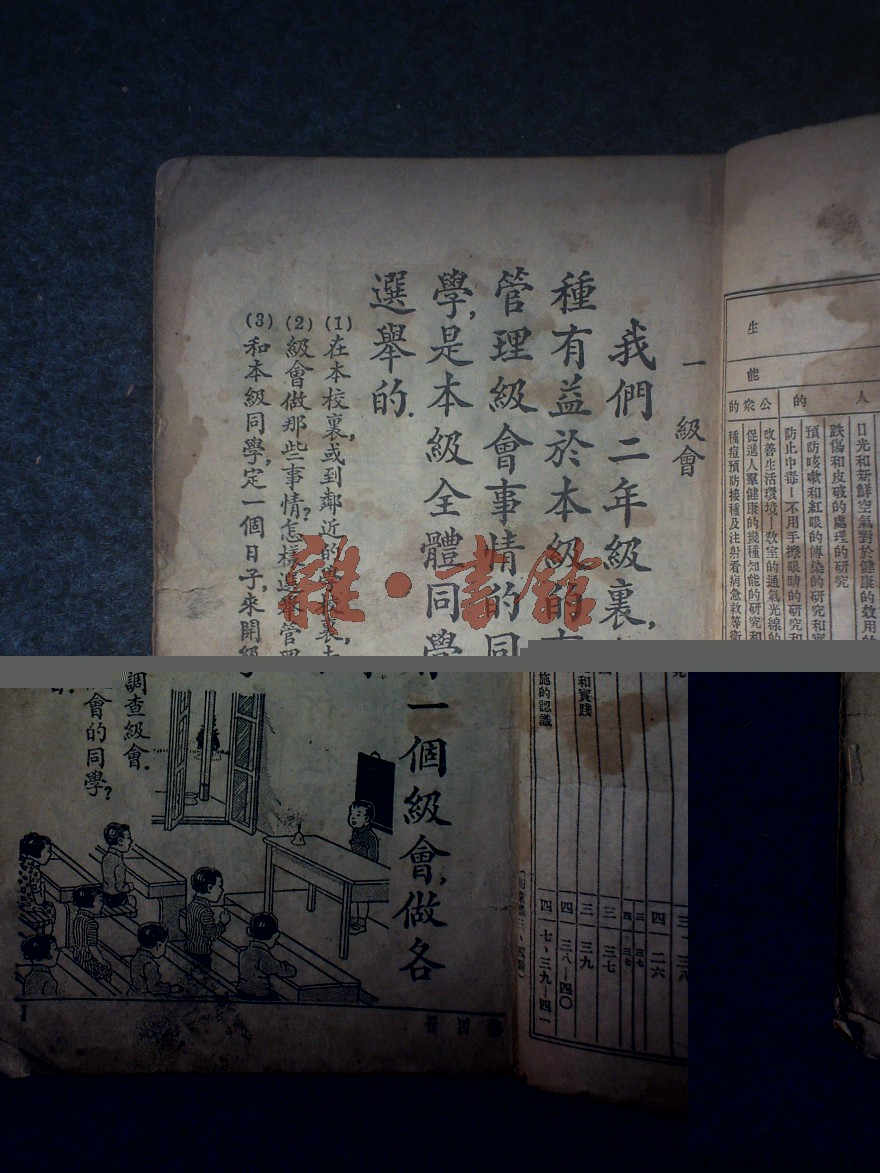 一 級會
我們二年級裏，
有一個級會，做各
種有益於本級的
管理級會事情的同
學，是本級全體同學
選舉的．
(1) 在本校裏，或到鄰近的學校裏去
調查級會．
(2) 級會做那些事情？怎樣選舉管理
會的同學？
(3) 和本級同學，定一個日子，來開級
雜·書館
生
能
人
的
公眾的
日光和新鮮空氣對於健康的效用的
跌傷和皮破的處理的研究
預防咳嗽和紅眼的傳染的研究和實
和實踐
防止中毒—不用手擦眼睛的研究和
改善生活環境—教室的通氣光線的
促進人羣健康的幾種知能的研究和
種痘預防接種及注射看病急救等衛
施的認識
四 二六
三 三七
三 三九
四 三八—四〇
四 一七、三九—四一